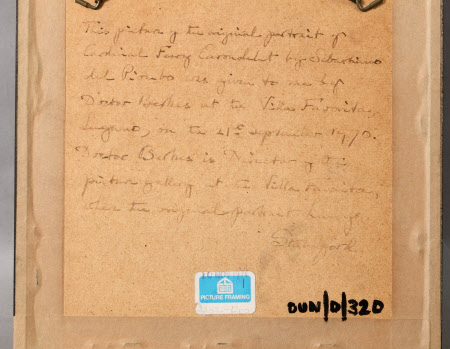 This picture of the original portrait of
Cardinal Ferry Carondelet by Sebastiano
del Piombo was given to me by
Doctor Berkes at the Villa Favorita,
Lugano, on the 21st September 1970.
Doctor Berkes is Director of the
picture gallery at the Villa Favorita,
where the original portrait hangs.
Stamford.
PICTURE FRAMING
DUN/D/320